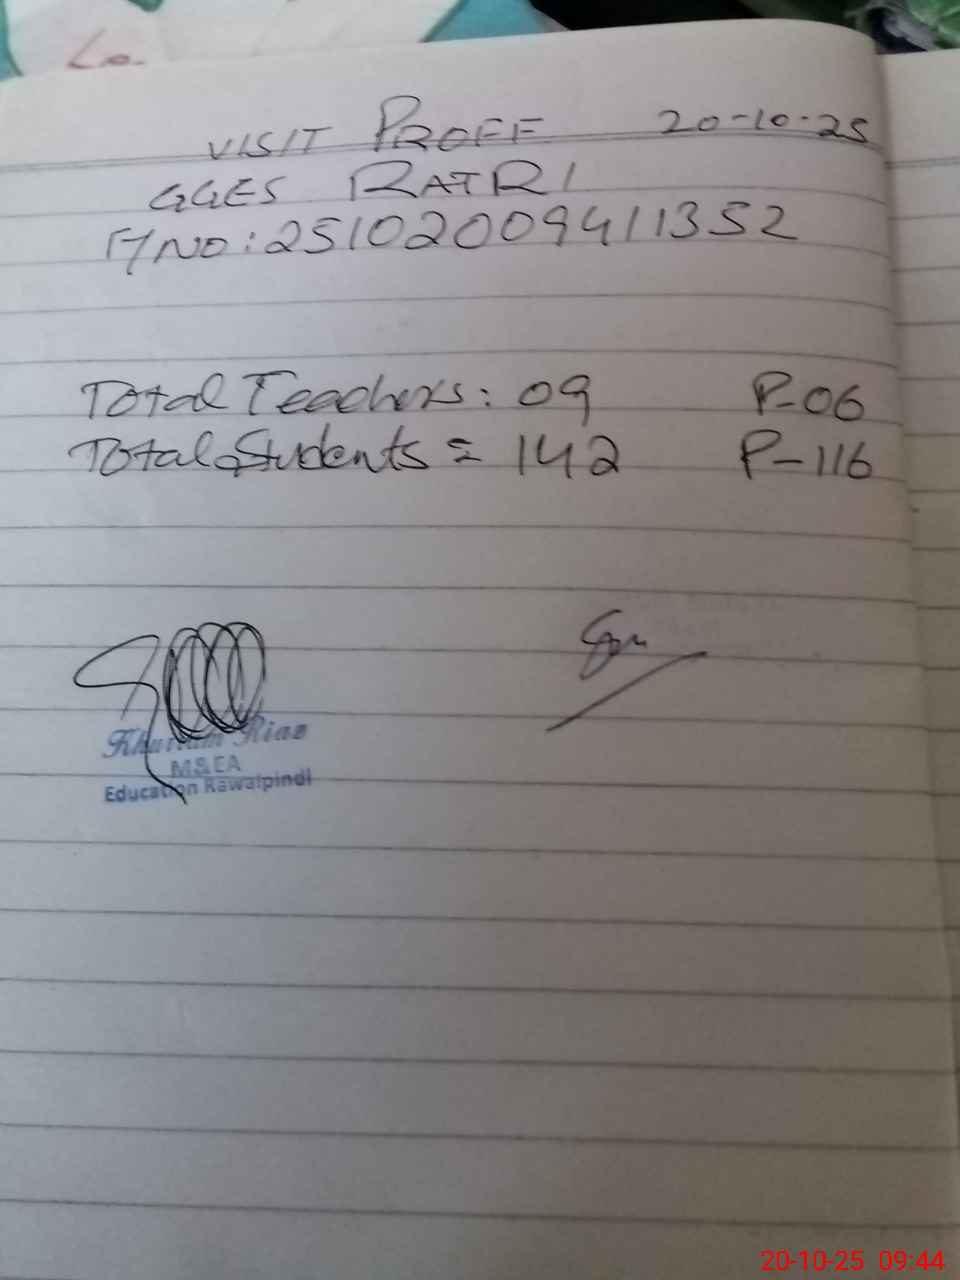 VISIT PROFF 20-10-25
GGES RATRI
A/NO: 251020094113 52
Total Teachers: 09 P-06
Total Students = 142 P-116
Khurram Riaz
M&EA
Education Rawalpindi
20-10-25 09:44